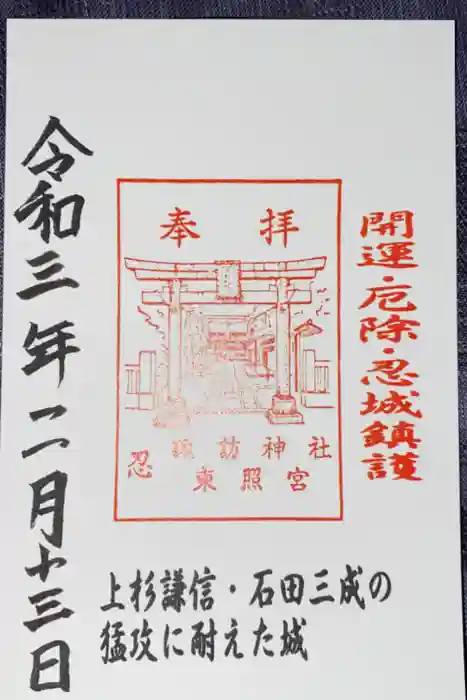 開運・厄除・忍城鎮護
奉拝
諏訪神社
忍東照宮
上杉謙信・石田三成の
猛攻に耐えた城
令和三年二月十三日